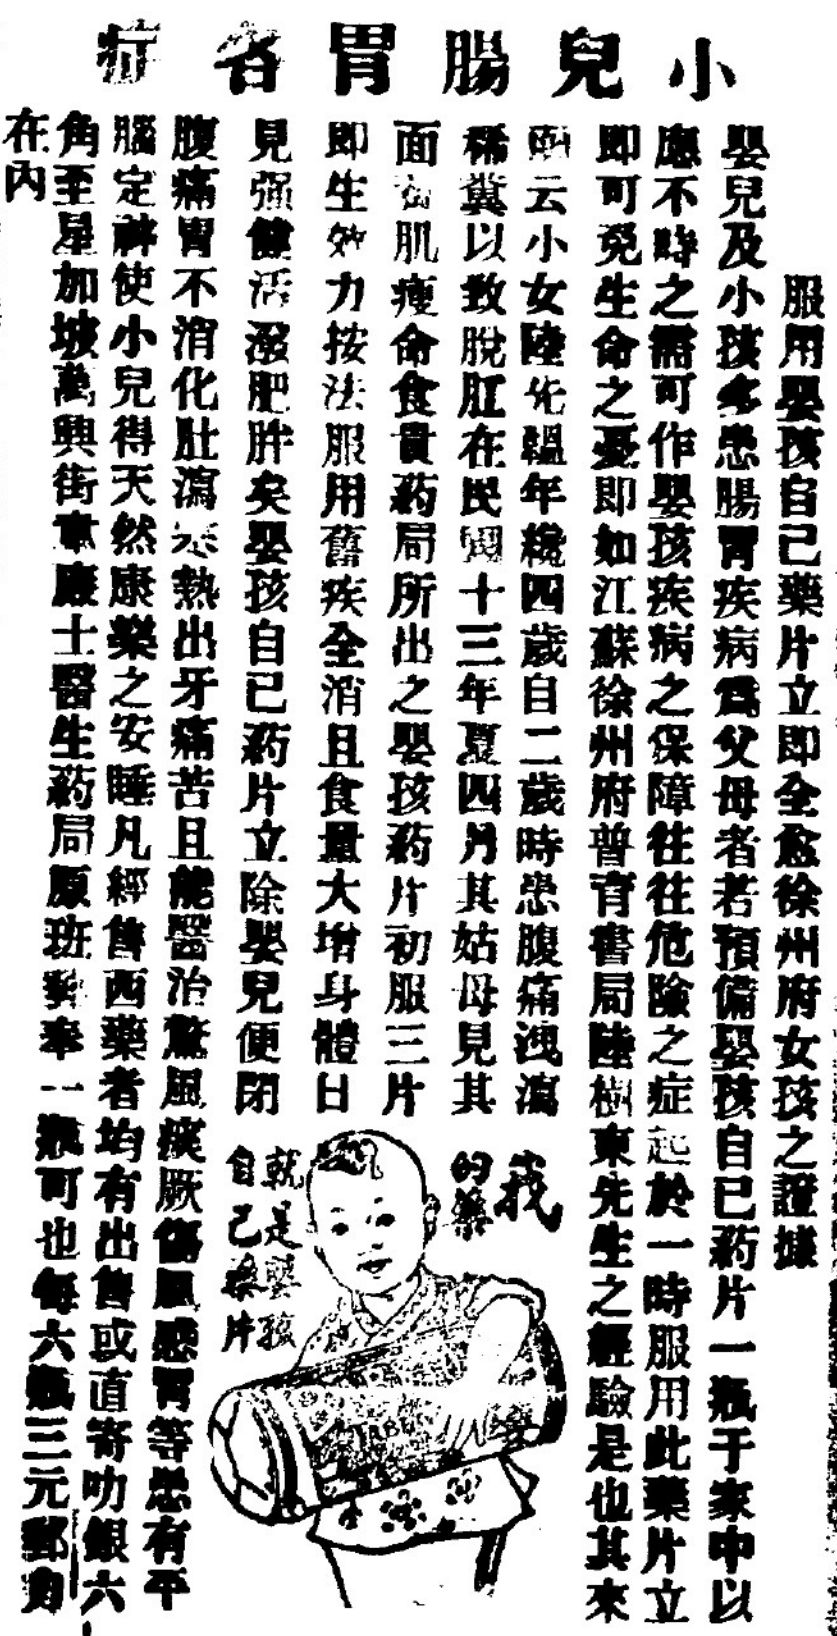 小兒腸胃各症
服用嬰孩自己藥片立即全愈徐州府女孩之證據
嬰兒及小孩多患腸胃疾病爲父母者若預備嬰孩自己葯片一瓶于家中以
應不時之需可作嬰孩疾病之保障往往危險之症起於一時服用此藥片立
即可免生命之憂即如江蘇徐州府普育書局陸樹東先生之經驗是也其來
函云小女陸先韞年纔四歲自二歲時患腹痛洩瀉
稀糞以致脫肛在民國十三年夏四月其姑母見其
面黃肌瘦命食貴葯局所出之嬰孩葯片初服三片
即生效力按法服用舊疾全消且食量大增身體日
見强健活潑肥胖矣嬰孩自己葯片立除嬰兒便閉
腹痛胃不消化肚瀉寒熱出牙痛苦且能醫治驚風痰厥傷風感冒等患有平
腦定神使小兒得天然康樂之安睡凡經售西藥者均有出售或直寄叻銀六
角至星加坡萬興街韋廉士醫生葯局原班郵奉一瓶可也每六瓶三元郵力
在內
我
的藥
就是嬰孩
自己藥片